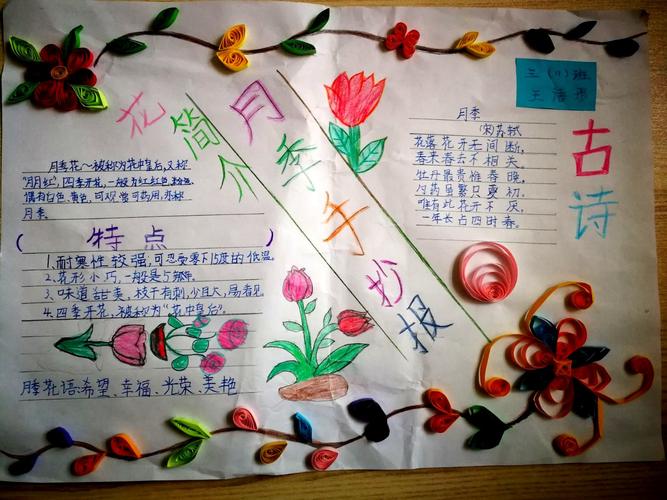 月季手抄报
花简介
月季花~被称为花中皇后,又称
"月月红",四季开花,一般为红红色,粉色
偶有白色,黄色,可观赏可药用,亦称
月季.
(特点)
1.耐寒性较强,可忍受零下15度的低温.
2.花形小巧,一般是5颁年.
3.味道甜美,枝干有刺,少且大,易看见
4.四季开花,被称为"花中皇后".
月季花语:希望、幸福、光荣、美艳
三(11)班
古诗
月季
(宋)苏轼
花落花开无间断,
春来春去不相关.
牡丹最贵惟春晚,
芍药虽繁只夏初.
唯有此花开不厌,
一年长占四时春.